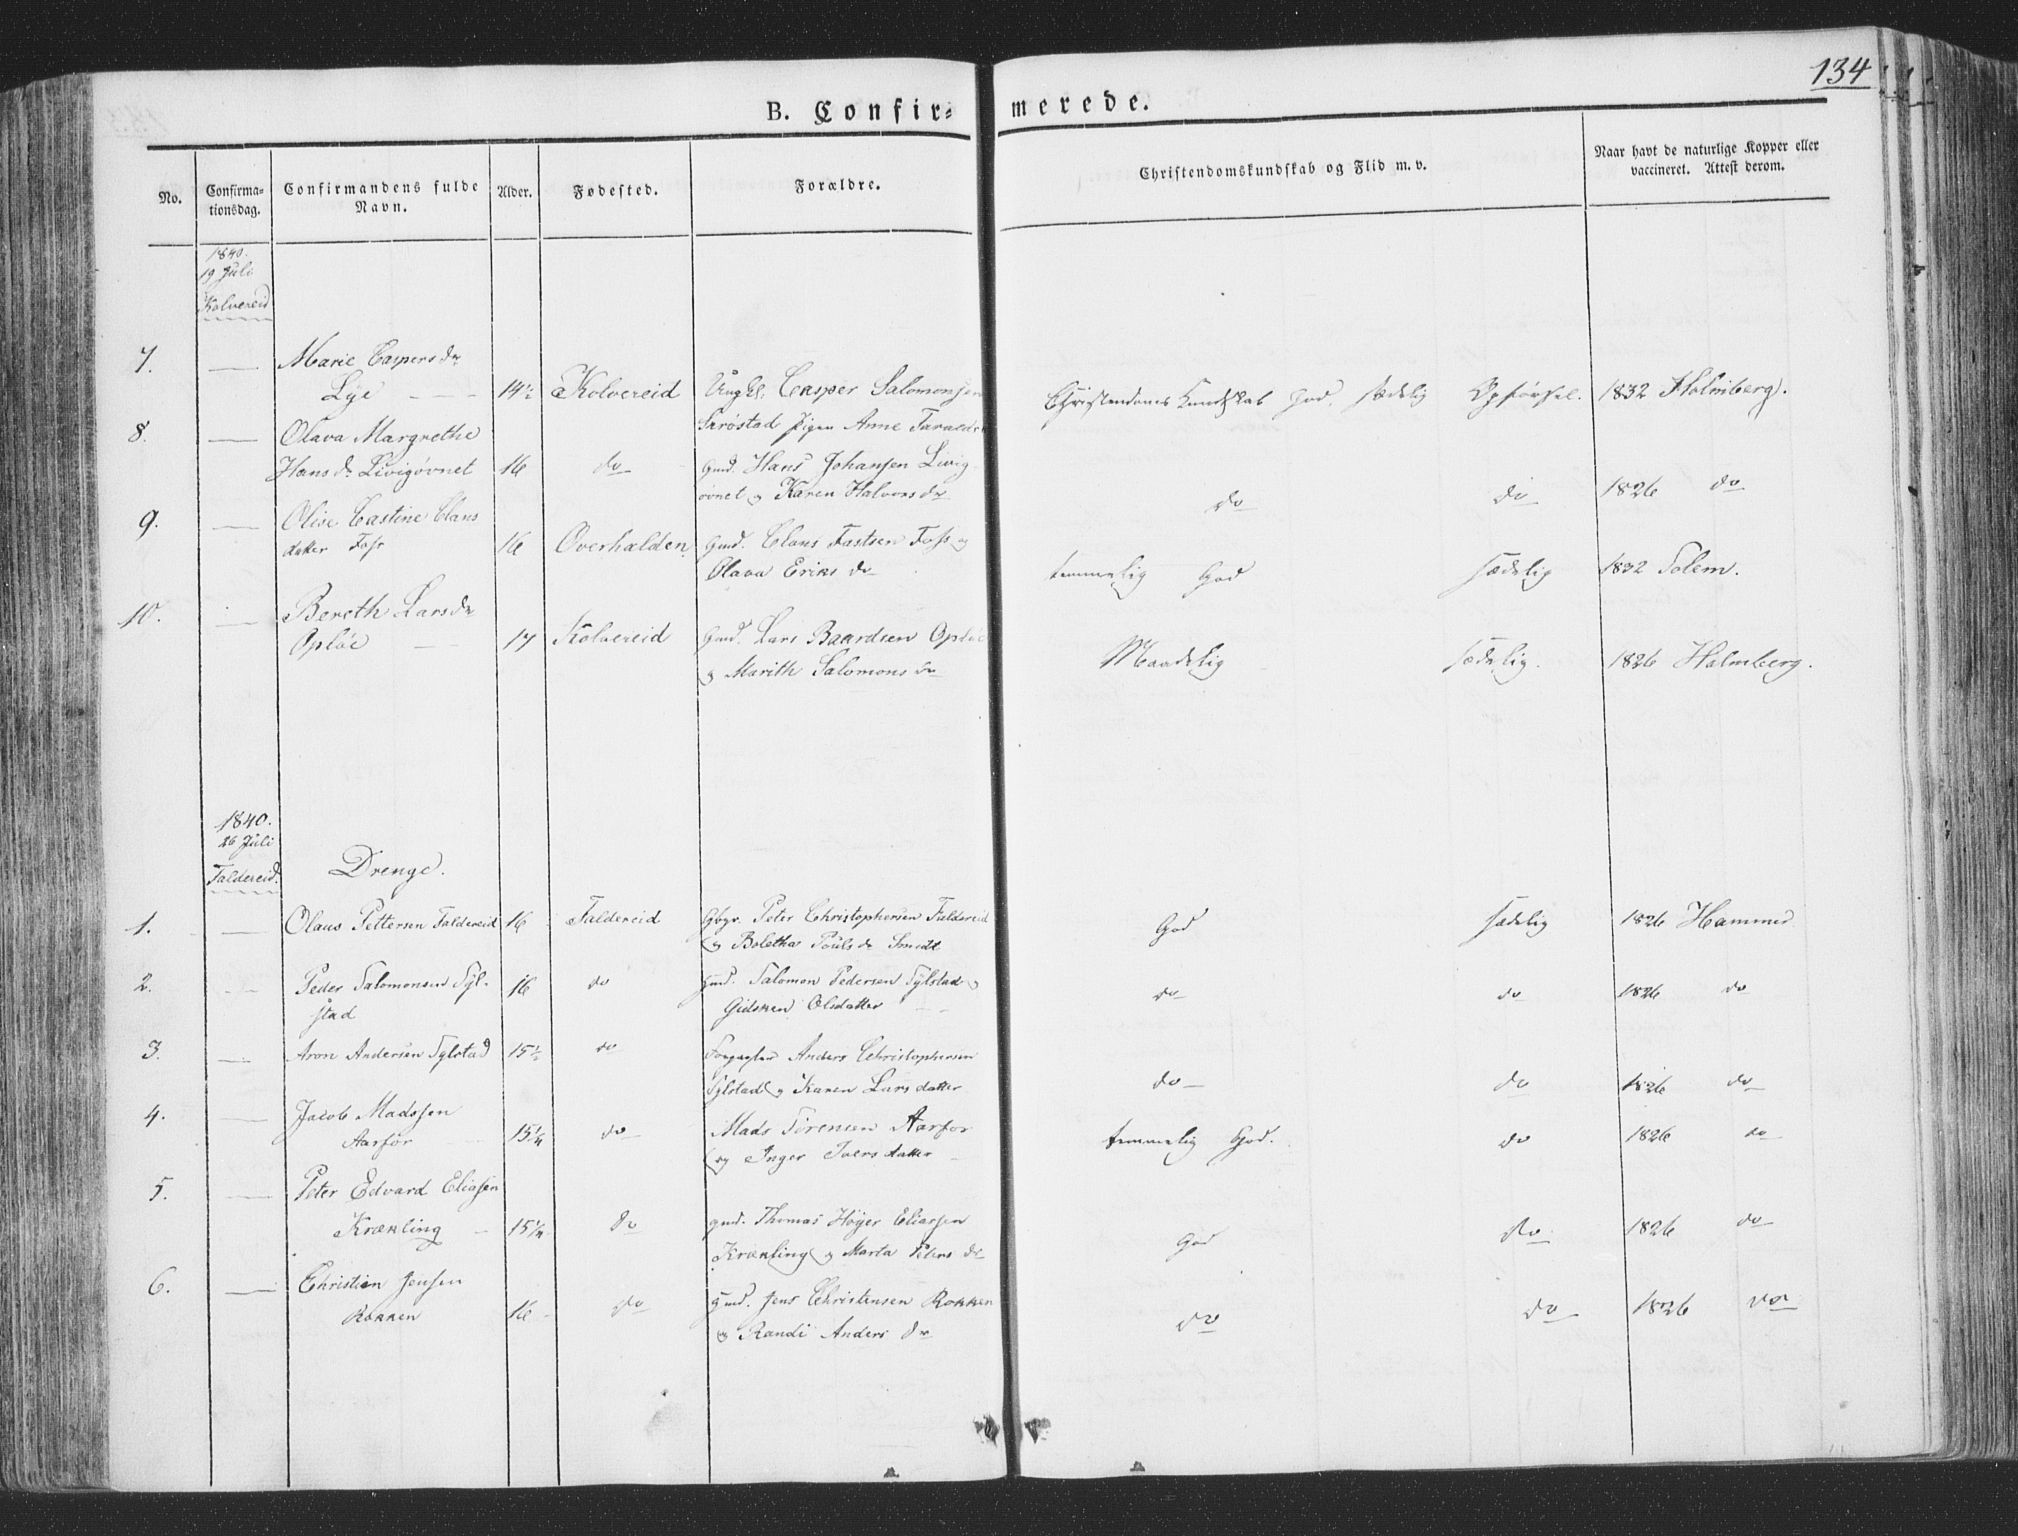 134
B. Confir- merede.
No.
Confirma-
tionsdag.
Confirmandens fulde
Navn.
Alder.
Fødested.
Forældre.
Christendomskundskab og Flid m. v.
Naar havt de naturlige Kopper eller
vaccineret. Attest derom.
1840.
19 Juli
Kolvereid
7. Marie Caspers dr
Lye 14½ Kolvereid Ungkl. Casper Salomonsen
Christendoms Kundskab God. sædelig Opførsel. 1832 Holmberg.
Pigen Anne
8. Olava Margrethe
Hans dr Livigøvnet 16 do Gmd. Hans Johansen Livig
øvnet og Karen Halvors dr
do do 1826 do
9. Olise Castine Claus
datter Foss 16 Overhalden Gmd. Claus Fastsen Foss og
Olava Eriks dr
temmelig God sædelig 1832 Solem.
10. Bereth Lars dr
Opløe 17 Kolvereid Gmd. Lars Baardsen Opløe
og Marith Salomons dr
Maadelig sædelig. 1826 Holmberg.
1840.
26 Juli
Foldereid.
Drenge.
1. Olaus Pettersen Foldereid 16 Foldereid Peter Christophersen Foldereid
og Boletha Pouls dr Smidt
God sædelig 1826 Hammer
2. Peder Salomonsen Syl-
stad 16 do Gmd. Salomon Pedersen Sylstad og
Gidsken Olsdatter
do do 1826 do
3. Aron Andersen Sylstad 15½ do Anders Christophersen
Sylstad og Karen Lars datter
do do 1826 do
4. Jacob Madssen
Aarfor 15¼ do Mads Sørensen Aarfor
og Inger Ivers datter
temmelig God. do 1826 do
5. Peter Edvard Eliasen
Krækling 15¼ do gmd. Thomas Høyer Eliassen
Krækling og Marta Peters dr
God do 1826 do
6. Christian Jensen
Rokken 16 do gmd. Jens Christensen Rokken
og Randi Anders dr
do do 1826 do